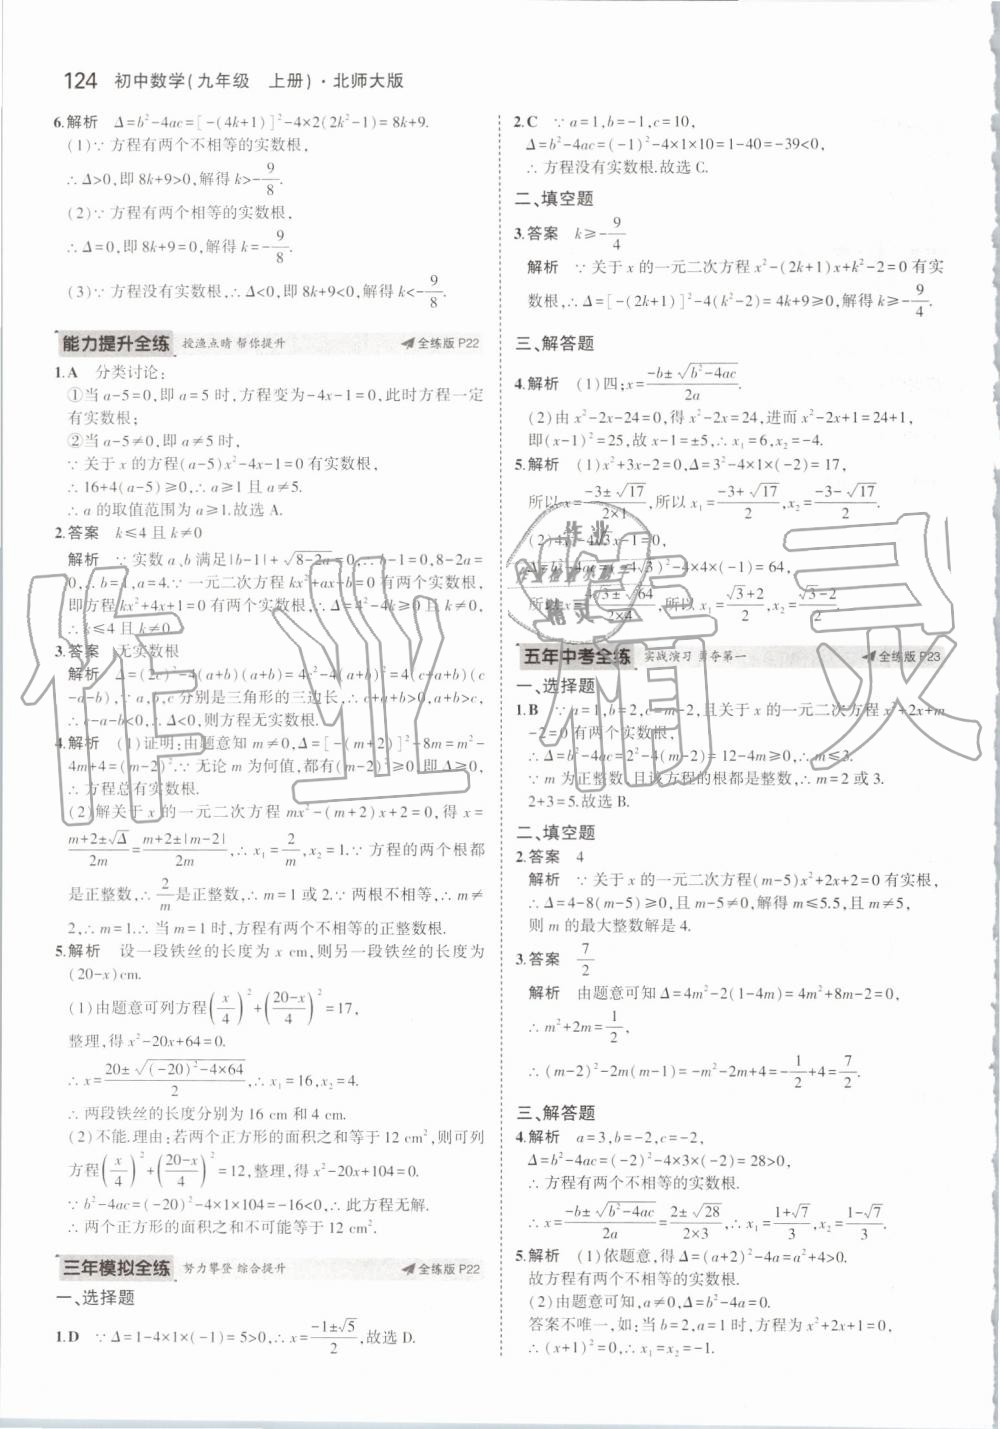 124 初中数学(九年级 上册)·北师大版
6.解析 Δ=b²-4ac=[-(4k+1)]²-4×2(2k²-1)=8k+9.
(1)∵方程有两个不相等的实数根,
∴Δ>0,即8k+9>0,解得k>-9/8.
(2)∵方程有两个相等的实数根,
∴Δ=0,即8k+9=0,解得k=-9/8.
(3)∵方程没有实数根,∴Δ<0,即8k+9<0,解得k<-9/8.
能力提升全练 授渔点睛 帮你提升 全练版P22
1.A 分类讨论:
①当a-5=0,即a=5时,方程变为-4x-1=0,此时方程一定
有实数根;
②当a-5≠0,即a≠5时,
∵关于x的方程(a-5)x²-4x-1=0有实数根,
∴16+4(a-5)≥0,∴a≥1且a≠5.
∴a的取值范围为a≥1.故选A.
2.答案 k≤4且k≠0
解析 ∵实数a,b满足|b-1|+√8-2a=0,∴b-1=0,8-2a=
0,∴b=1,a=4.∵一元二次方程kx²+ax+b=0有两个实数根,
即方程kx²+4x+1=0有两个实数根,∴Δ=4²-4k≥0且k≠0,
∴k≤4且k≠0.
3.答案 无实数根
解析 Δ=(2c)²-4(a+b)(a+b)=4c²-4(a+b)²=4(a+b+c)(c
-a-b),∵a,b,c分别是三角形的三边长,∴c+a+b>0,a+b>c,
∴c-a-b<0,∴Δ<0,则方程无实数根.
4.解析 (1)证明:由题意知m≠0,Δ=[-(m+2)]²-8m=m²-
4m+4=(m-2)².∵无论m为何值,都有(m-2)²≥0,即Δ≥0,
∴方程总有实数根.
(2)解关于x的一元二次方程mx²-(m+2)x+2=0,得x=
(m+2±√Δ)/2m=(m+2±|m-2|)/2m,∴x₁=2/m,x₂=1.∵方程的两个根都
是正整数,∴2/m是正整数,∴m=1或2.∵两根不相等,∴m≠
2,∴m=1.∴当m=1时,方程有两个不相等的正整数根.
5.解析 设一段铁丝的长度为x cm,则另一段铁丝的长度为
(20-x)cm.
(1)由题意可列方程(x/4)²+((20-x)/4)²=17,
整理,得x²-20x+64=0.
∴x=(20±√(-20)²-4×64)/2,∴x₁=16,x₂=4.
∴两段铁丝的长度分别为16 cm和4 cm.
(2)不能.理由:若两个正方形的面积之和等于12 cm²,则可列
方程(x/4)²+((20-x)/4)²=12,整理,得x²-20x+104=0.
∵b²-4ac=(-20)²-4×1×104=-16<0,∴此方程无解.
∴两个正方形的面积之和不可能等于12 cm².
三年模拟全练 努力攀登 综合提升 全练版P22
一、选择题
1.D ∵Δ=1-4×1×(-1)=5>0,∴x=(-1±√5)/2,故选D.
2.C ∵a=1,b=-1,c=10,
Δ=b²-4ac=(-1)²-4×1×10=1-40=-39<0,
∴方程没有实数根.故选C.
二、填空题
3.答案 k≥-9/4
解析 ∵关于x的一元二次方程x²-(2k+1)x+k²-2=0有实
数根,∴Δ=[-(2k+1)]²-4(k²-2)=4k+9≥0,解得k≥-9/4.
三、解答题
4.解析 (1)四;x=(-b±√b²-4ac)/2a.
(2)由x²-2x-24=0,得x²-2x=24,进而x²-2x+1=24+1,
即(x-1)²=25,故x-1=±5,∴x₁=6,x₂=-4.
5.解析 (1)x²+3x-2=0,Δ=3²-4×1×(-2)=17,
所以x=(-3±√17)/2×1,所以x₁=(-3+√17)/2,x₂=(-3-√17)/2.
(2)4x²-4√3x-1=0,
Δ=b²-4ac=(-4√3)²-4×4×(-1)=64,
所以x=(4√3±√64)/2×4,所以x₁=(√3+2)/2,x₂=(√3-2)/2.
五年中考全练 实战演习 勇夺第一 全练版P23
一、选择题
1.B ∵a=1,b=2,c=m-2,且关于x的一元二次方程x²+2x+m
-2=0有两个实数根,
∴Δ=b²-4ac=2²-4(m-2)=12-4m≥0,∴m≤3.
∵m为正整数,且该方程的根都是整数,∴m=2或3.
2+3=5.故选B.
二、填空题
2.答案 4
解析 ∵关于x的一元二次方程(m-5)x²+2x+2=0有实根,
∴Δ=4-8(m-5)≥0,且m-5≠0,解得m≤5.5,且m≠5,
则m的最大整数解是4.
3.答案 7/2
解析 由题意可知Δ=4m²-2(1-4m)=4m²+8m-2=0,
∴m²+2m=1/2,
∴(m-2)²-2m(m-1)=-m²-2m+4=-1/2+4=7/2.
三、解答题
4.解析 a=3,b=-2,c=-2,
Δ=b²-4ac=(-2)²-4×3×(-2)=28>0,
∴方程有两个不相等的实数根.
∴x=(-b±√b²-4ac)/2a=(2±√28)/2×3,∴x₁=(1+√7)/3,x₂=(1-√7)/3.
5.解析 (1)依题意,得Δ=(a+2)²-4a=a²+4>0,
故方程有两个不相等的实数根.
(2)由题意可知,a≠0,Δ=b²-4a=0.
答案不唯一,如:当b=2,a=1时,方程为x²+2x+1=0,
∴(x+1)²=0,∴x₁=x₂=-1.
作业精灵